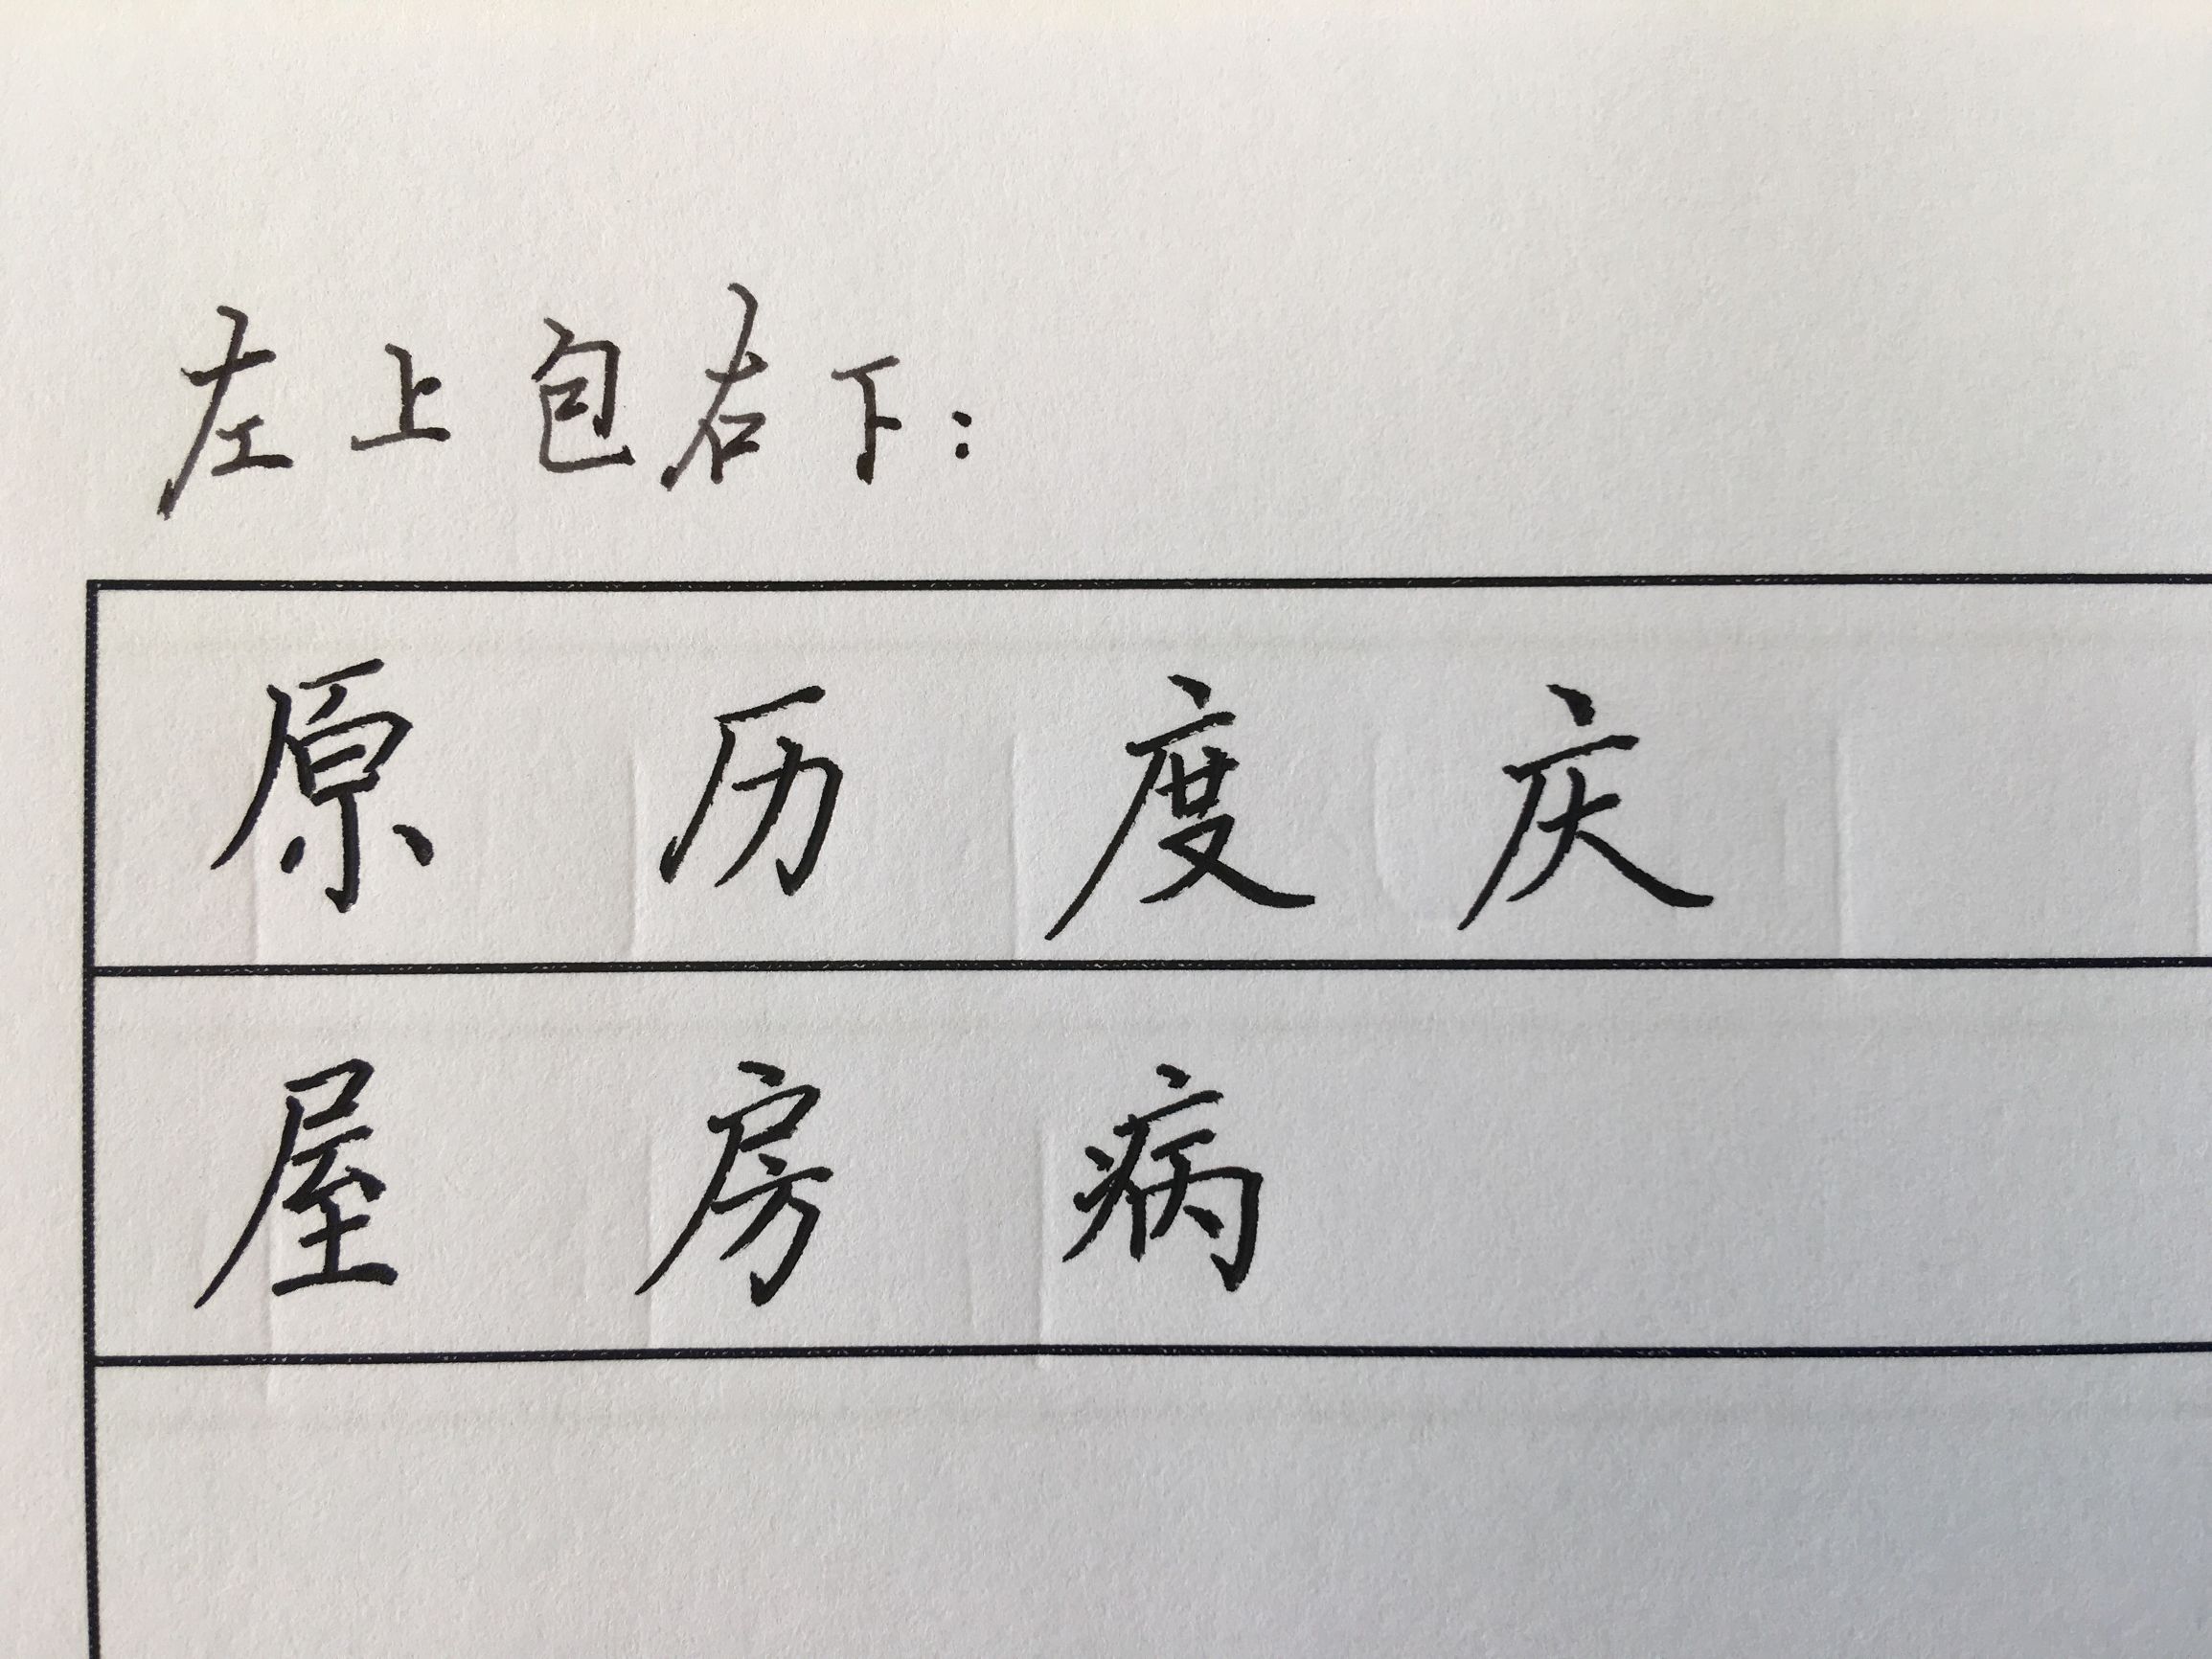 左上包右下:
原 历 度 庆
屋 房 病